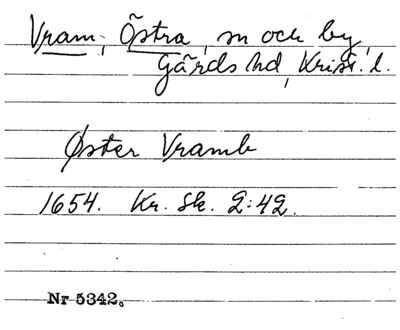 Vram, Östra, sn och by,
Gärds hd, Krist. l.
Øster Vramb
1654. Kr. Sk. 2:42.
Nr 5342.